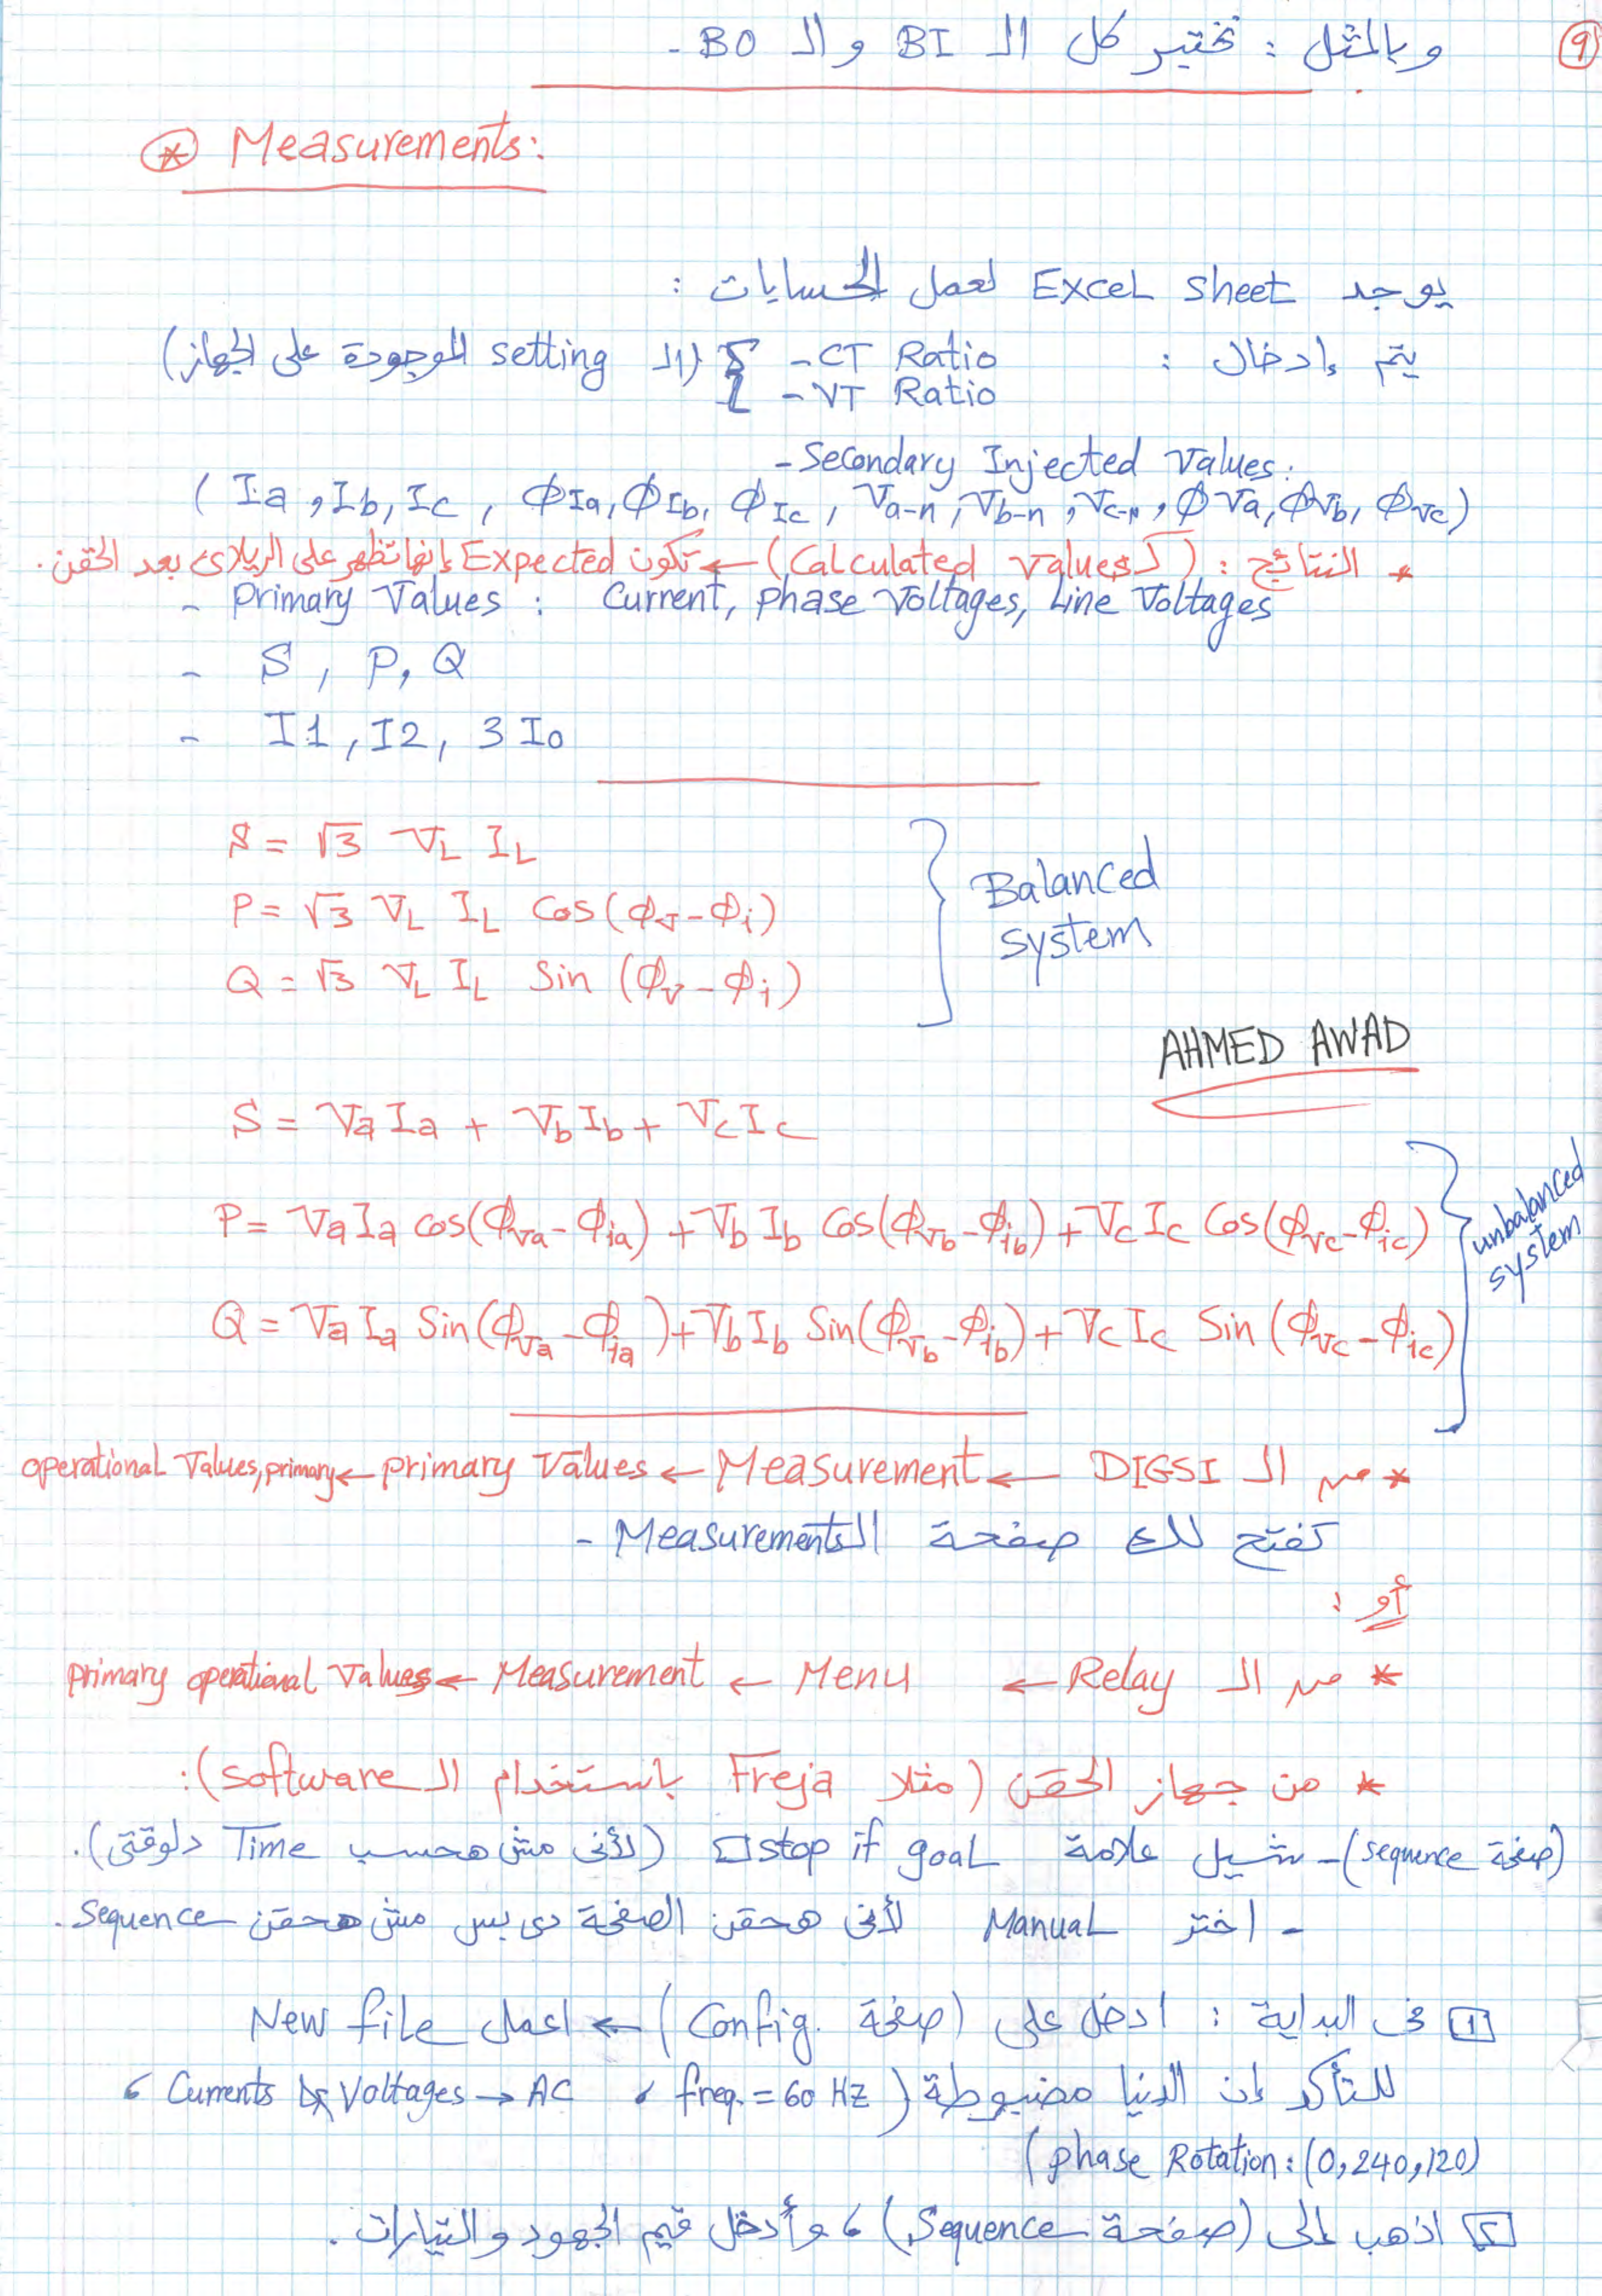 ٩
وبالمثل : نختبر كل الـ BI والـ BO -
* Measurements:
يوجد Excel sheet لعمل الحسابات :
يتم إدخال : - CT Ratio (الـ setting الموجودة على الجهاز)
- VT Ratio
- Secondary Injected Values:
( Ia , Ib, Ic , ϕIa, ϕIb, ϕIc , Va-n, Vb-n, Vc-n, ϕVa, ϕVb, ϕVc)
* النتائج : (كـ Calculated Values) ← تكون Expected إنها تظهر على الريلاى بعد الحقن .
- Primary Values : Current, phase Voltages, Line Voltages
- S , P, Q
- I1 , I2, 3 I0
S = √3 VL IL
P = √3 VL IL Cos (ϕv - ϕi)
Q = √3 VL IL Sin (ϕv - ϕi)
Balanced system
AHMED AWAD
S = Va Ia + Vb Ib + Vc Ic
P = Va Ia cos(ϕva - ϕia) + Vb Ib Cos(ϕvb - ϕib) + Vc Ic Cos(ϕvc - ϕic)
Q = Va Ia Sin(ϕva - ϕia) + Vb Ib Sin(ϕvb - ϕib) + Vc Ic Sin (ϕvc - ϕic)
unbalanced system
* من الـ DIGSI ← Measurement ← primary Values ← operational Values, primary
تفتح لك صفحة الـ Measurements -
أو :
* من الـ Relay ← Menu ← Measurement ← primary operational Values
* من جهاز الحقن (مثلا Freja باستخدام الـ software):
(صفحة sequence) - شيل علامة stop if goal □ (لأنى مش هحسب Time دلوقتى).
- اختر Manual لأنى هحقن الصفحة دى بس مش هحقن Sequence .
[1] فى البداية : ادخل على (صفحة Config.) ← اعمل New file
للتأكد إن الدنيا مضبوطة ( freq. = 60 HZ ، Currents & Voltages → AC ،
phase Rotation : (0,240,120) )
[٢] اذهب إلى (صفحة Sequence) ، وأدخل قيم الجهود والتيارات .